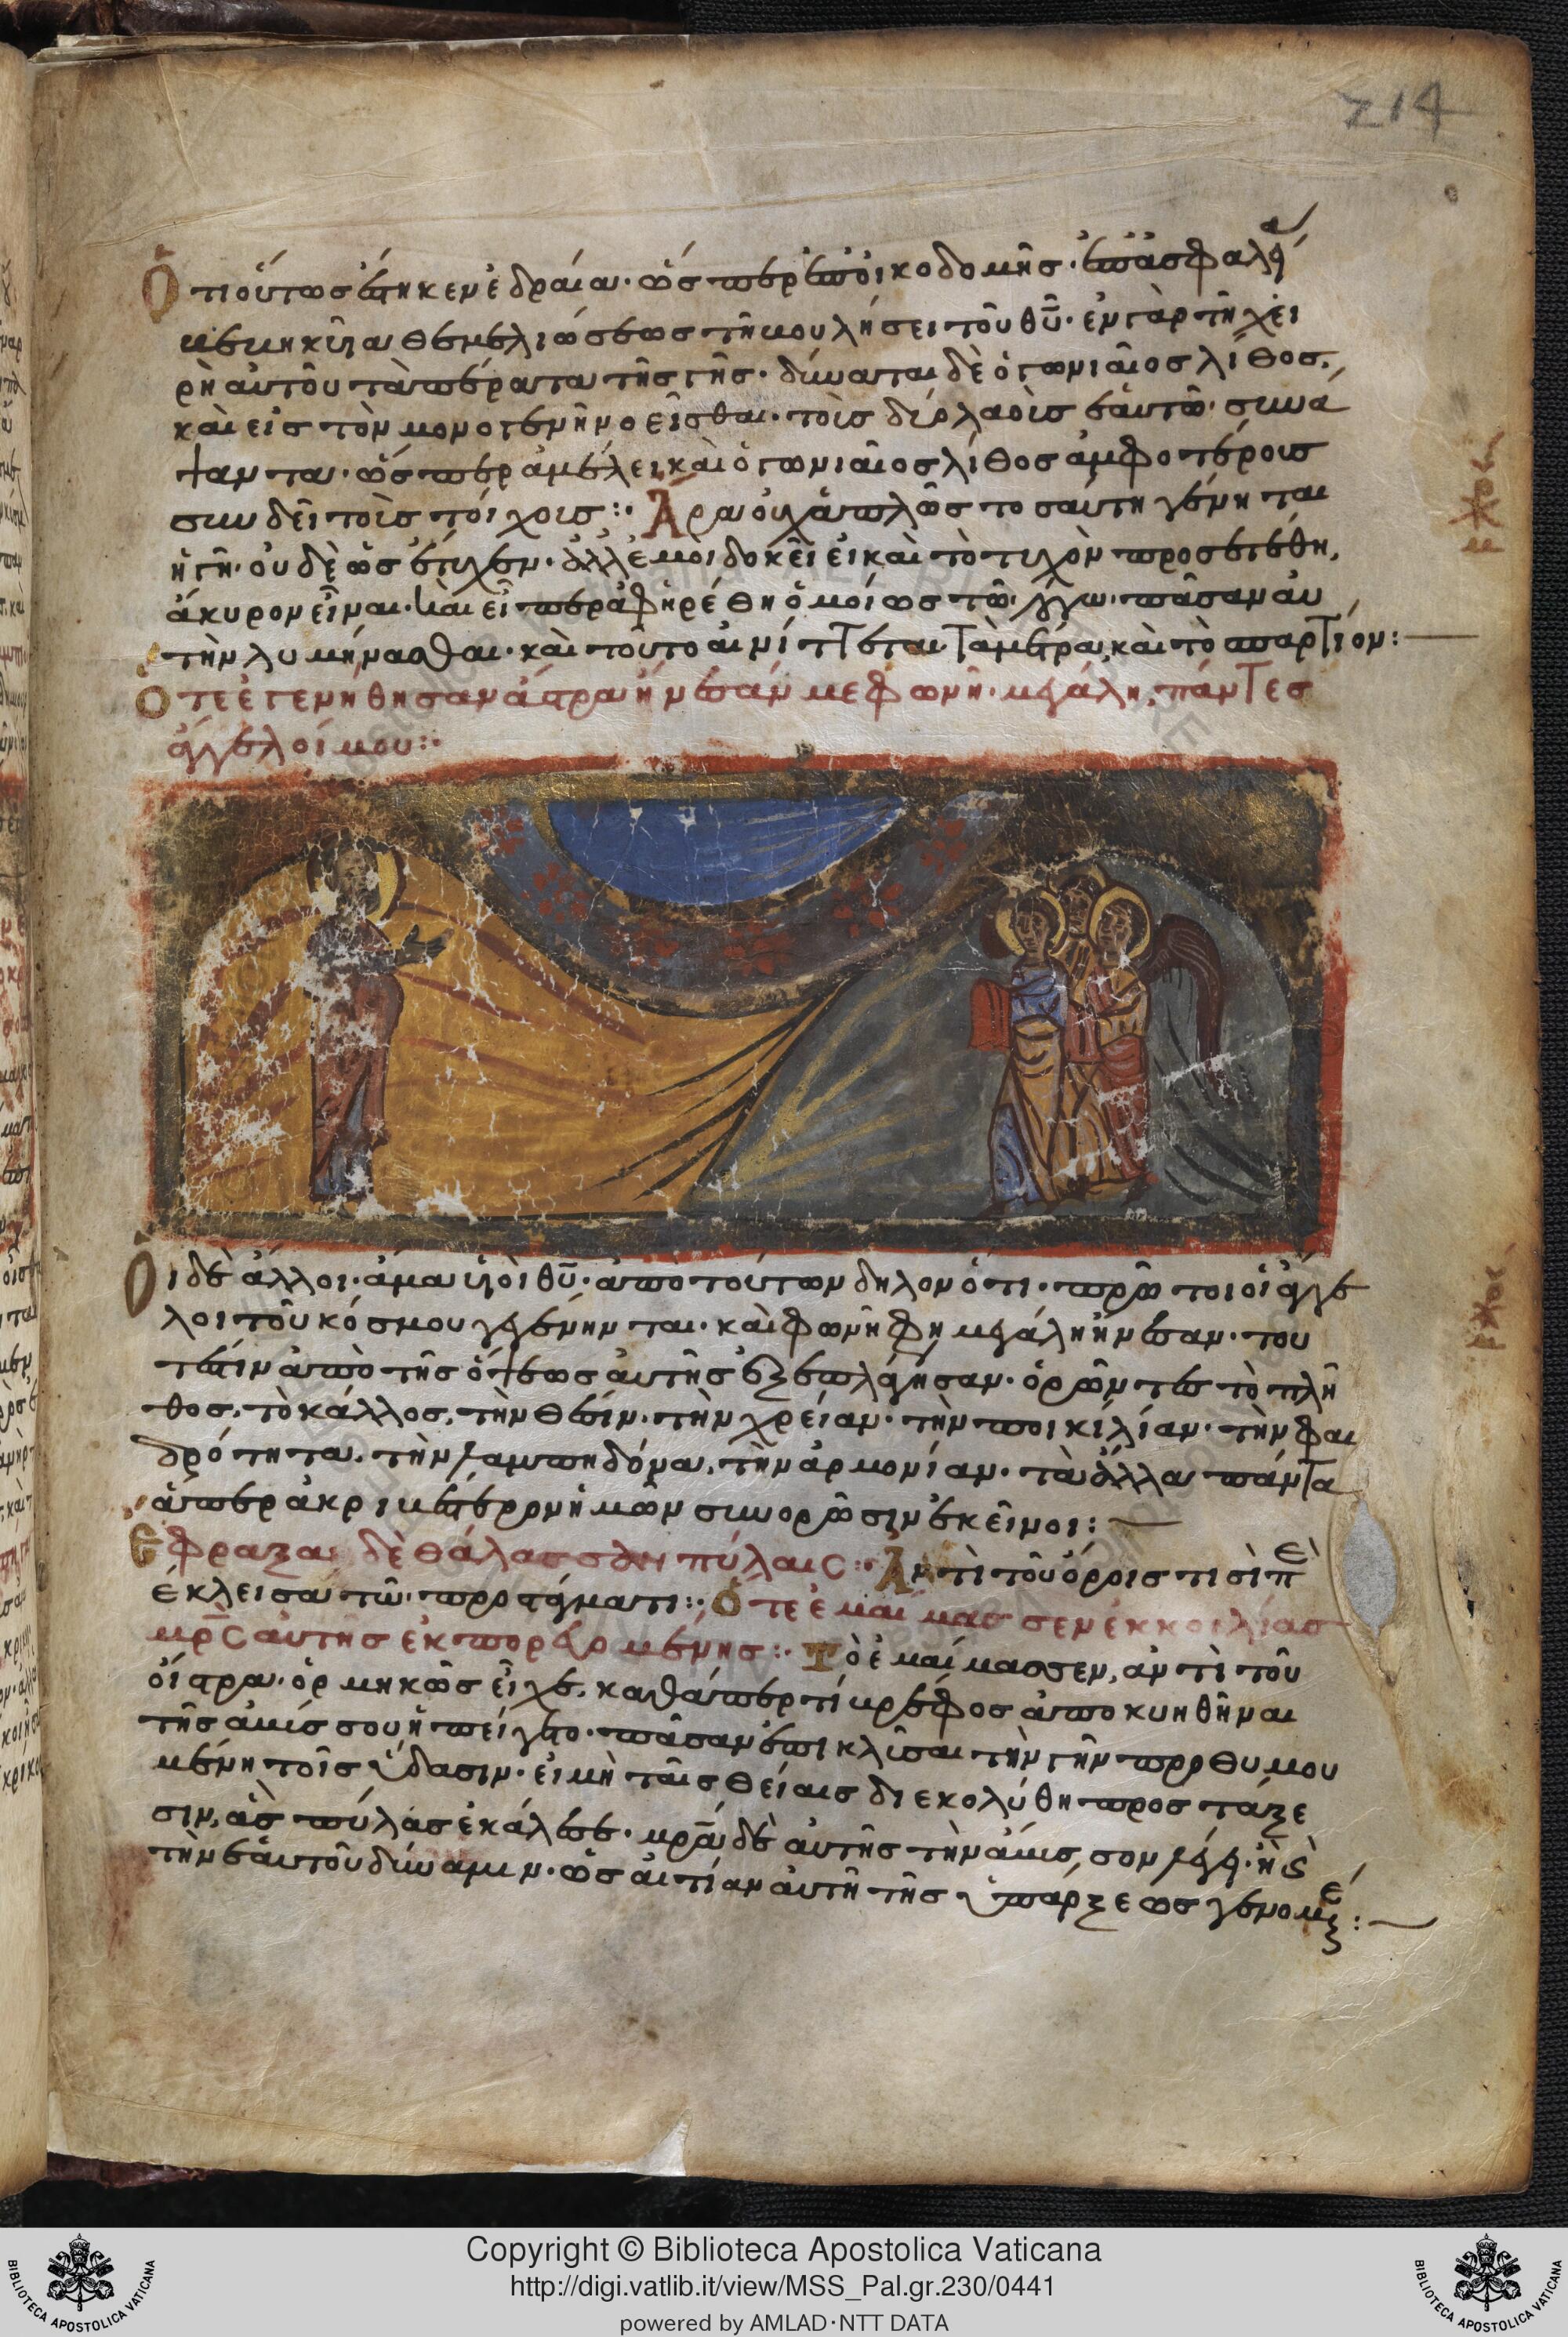 214
Ὅτι οὕτως ἕστηκεν ἑδραία· ὥσπερ ἐπ' οἰκοδομῆς· ἐπ' ἀσφαλεῖ
θεμελιώσεως τῇ βουλήσει τοῦ θῦ· ἐν γὰρ τῇ χει
ρὶ αὐτοῦ τὰ πέρατα τῆς γῆς· δύναται δὲ ὁ γωνιαῖος λίθος,
καὶ εἰς τὸν μονογενῆ νοεῖσθαι· τοῖς δύο λαοῖς ἑαυτῶ συνά
ψαντα· ὥσπερ ἀμέλει καὶ ὁ γωνιαῖος λίθος ἀμφοτέροις
συνδεῖ τοῖς τοίχοις: Ἆρα οὐχ ἁπλῶς τοσαύτη γεγένηται
ἡ γῆ· οὐδὲ ὡς ἔτυχεν· ἀλλ' ἐμοὶ δοκεῖ εἰ καὶ τὸ τυχὸν προσετέθη,
ἄκυρον εἶναι· καὶ εἴπερ ἀφηρέθη ὁμοίως τῶ λόγω· πᾶσαν ἂν
τὴν λυμήνασθαι· καὶ τοῦτο αἰνίττεται τὰ μέτρα, καὶ τὸ σπαρτίον:
Ὅτε ἐγενήθησαν ἄστρα ἤνεσάν με φωνῆ μεγάλη, πάντες
ἄγγελοί μου:
Οἱ δὲ ἄλλοι· ἅμα υἱοὶ θῦ· ἀπὸ τούτων δηλονότι· πρῶτοι οἱ ἄγγε
λοι τοῦ κόσμου γεγένηνται· καὶ φωνῆ φη μεγάλη ἤνεσαν· του
τέστιν ἀπὸ τῆς ὄψεως αὐτῆς ἐξεπλάγησαν· ὁρῶντες τὸ πλῆ
θος, τὸ κάλλος, τὴν θέσιν· τὴν χρείαν· τὴν ποικιλίαν· τὴν φαι
δρότητα, τὴν λαμπηδόνα, τὴν ἁρμονίαν· τὰ ἄλλα πάντα
ἅπερ ἀκριβέστερον ἡμῶν συνορῶσιν ἐκεῖνοι:
Ἔφραξα δὲ θάλασσαν πύλαις: Ἀντὶ τοῦ ὅροις τισὶ π
ἔκλεισα τῶ προστάγματι: Ὅτε ἐμαίμασσεν ἐκ κοιλίας
μρς αὐτῆς ἐκπορευομένης: Τὸ ἐμαίμασσεν, ἀντὶ τοῦ
οἴστρα· ὁρμηκῶς εἶχε, καθάπερ τι βρέφος ἀποκυηθῆναι
τῆς ἀβύσσου ἠπείγετο· πᾶσαν ἐπικλῦσαι τὴν γῆν προθυμου
μένη τοῖς ὕδασιν· εἰ μὴ ταῖς θείαις διεκολύθη προστάξε
σιν, ἃς πύλας ἐκάλεσε· μρα δὲ αὐτῆς τὴν ἄβυσσον λέγει· ἢ
τὴν ἑαυτοῦ δύναμιν· ὡς αἰτίαν αὐτῆ τῆς ὑπάρξεως γενομέν:
Copyright © Biblioteca Apostolica Vaticana
http://digi.vatlib.it/view/MSS_Pal.gr.230/0441
powered by AMLAD·NTT DATA
BIBLIOTECA APOSTOLICA VATICANA
BIBLIOTECA APOSTOLICA VATICANA